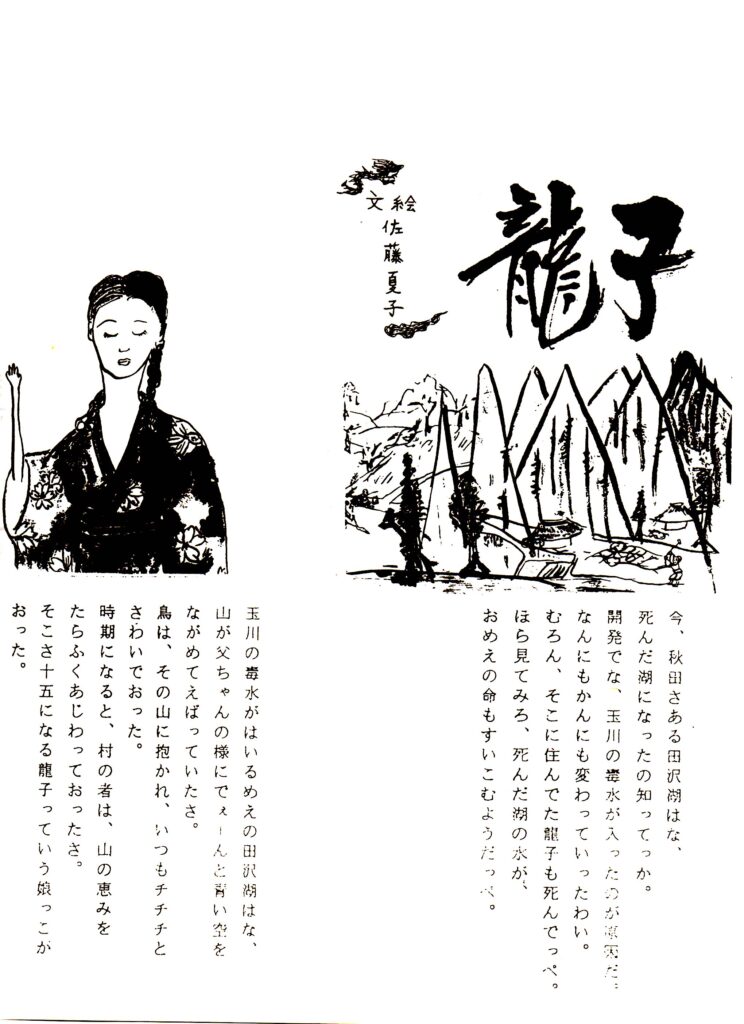 龍子
文 絵
佐藤夏子
今、秋田さある田沢湖はな、
死んだ湖になったの知ってっか。
開発でな、玉川の毒水が入ったのが原因だ。
なんにもかんにも変わっていったわい。
むろん、そこに住んでた龍子も死んでっぺ。
ほら見てみろ、死んだ湖の水が、
おめえの命もすいこむようだっぺ。
玉川の毒水がはいるめえの田沢湖はな、
山が父ちゃんの様にでぇーんと青い空を
ながめてえばっていたさ。
鳥は、その山に抱かれ、いつもチチチと
さわいでおった。
時期になると、村の者は、山の恵みを
たらふくあじわっておったさ。
そこさ十五になる龍子っていう娘っこが
おった。